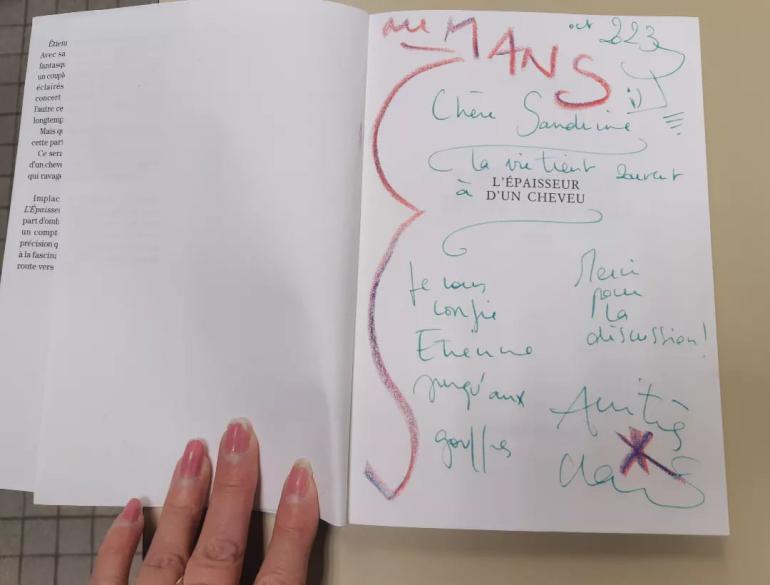 Étien
Avec sa
fantasq
un coupl
éclairés
concert
l'autre ce
longtemp
Mais qu
cette part
Ce sera
d'un chev
qui ravage
Implac
L'Épaisseu
part d'omb
un compt
précision q
à la fascina
route vers
au MANS
oct 223
Chère Sandrine
la vie tient souvent
à L'ÉPAISSEUR
D'UN CHEVEU
Je vous
confie
Etienne
jusqu'aux
gouffres
Merci
pour
la
discussion!
Amitiés